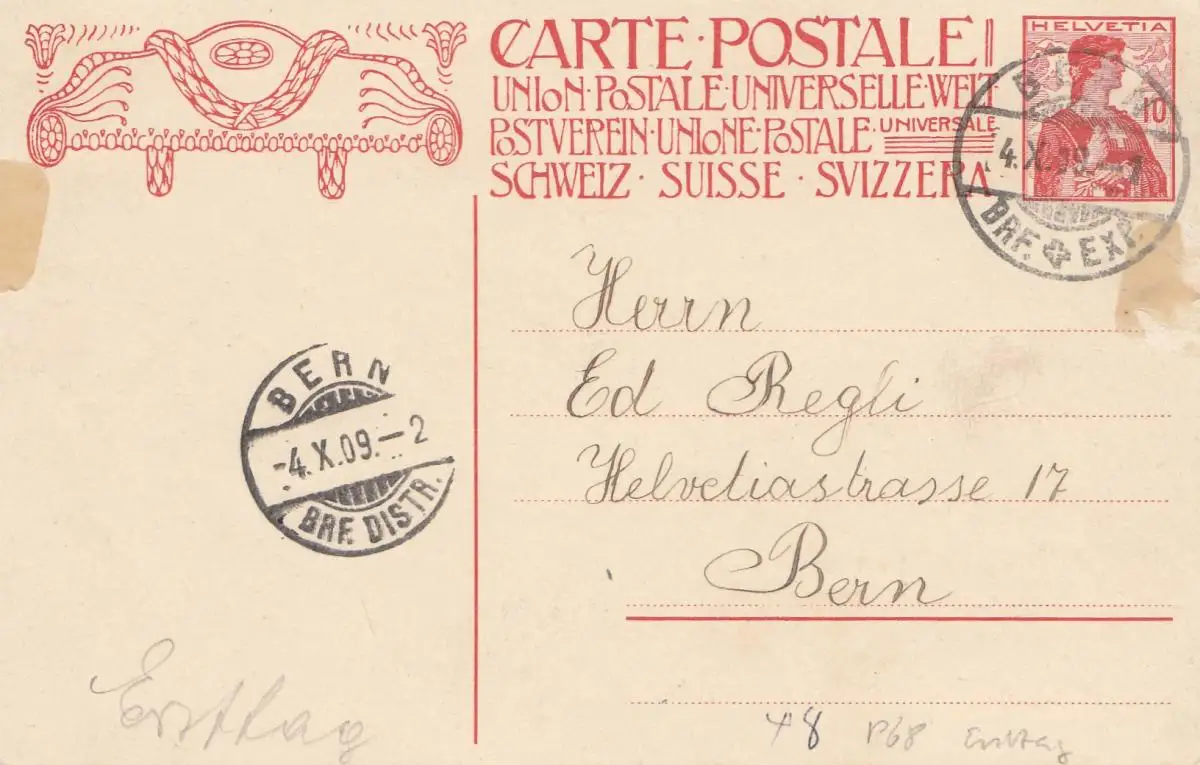 CARTE·POSTALE
UNION·POSTALE·UNIVERSELLE·WELT-
POSTVEREIN·UNIONE·POSTALE·UNIVERSALE
SCHWEIZ · SUISSE · SVIZZERA
HELVETIA
10
4.X.09.-1
BRF. EXP.
Herrn
Ed Regli
Helvetiastrasse 17
Bern
BERN
-4.X.09.-2
BRF. DISTR.
Ersttag
48 P68 Ersttag